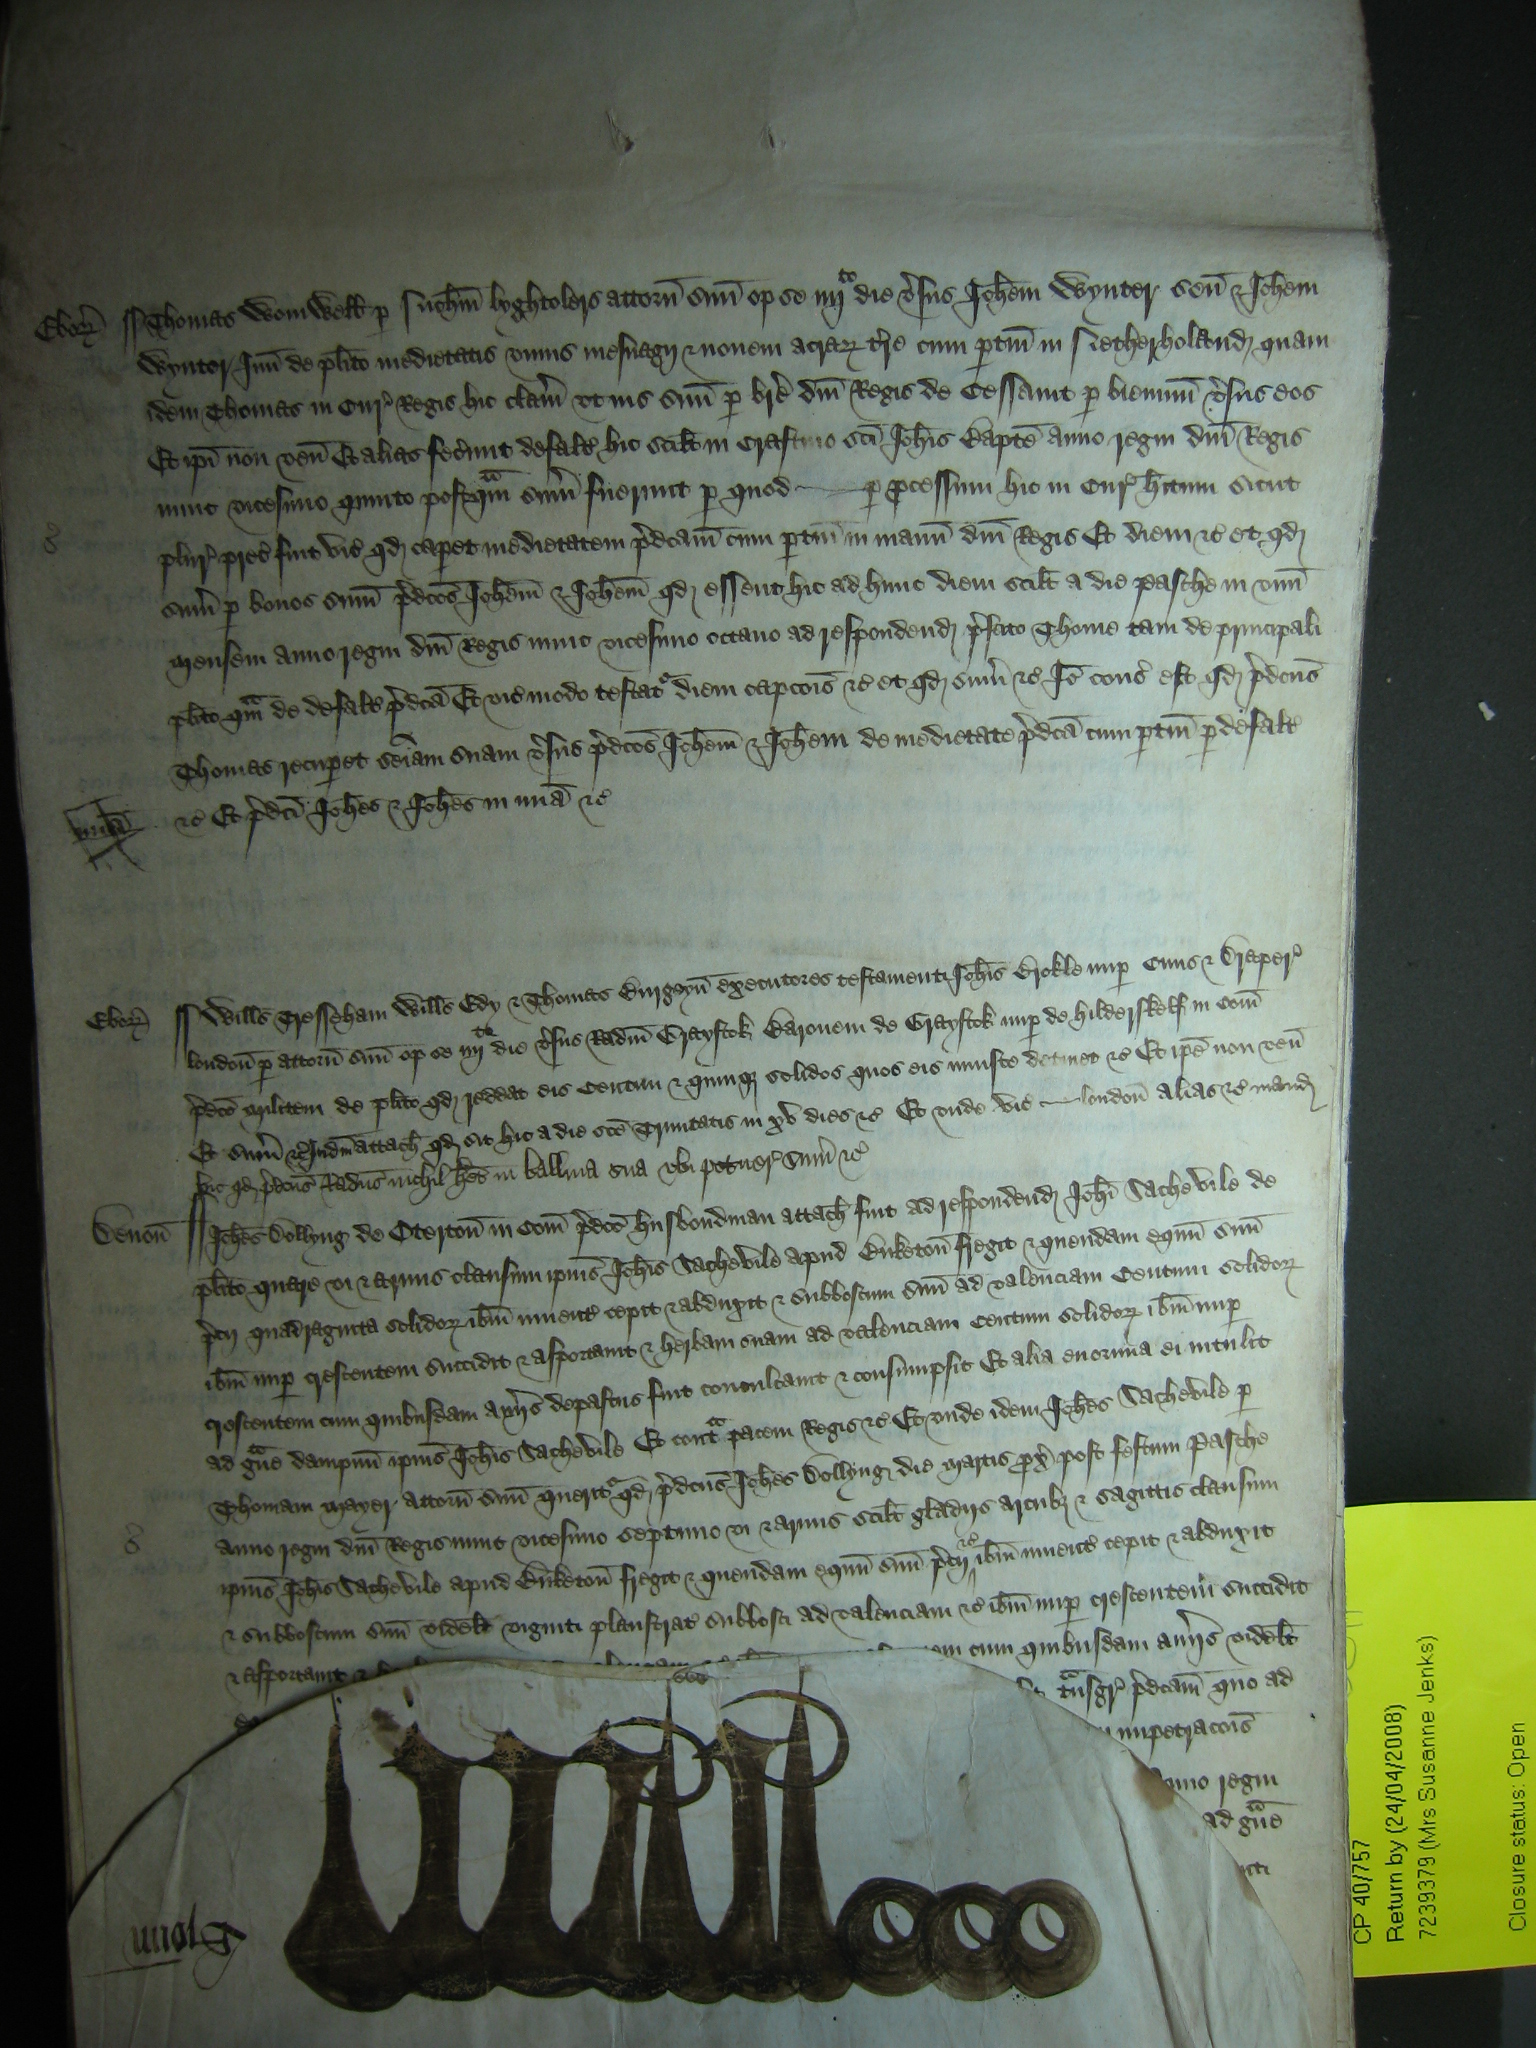 Ebor̄ Thomas Womwell p Nichm̄ lyghtolers attorn̄ suū op se iiijto die v̄sus Johem̄ Wynter sen̄ & Johem
Wynter Jun̄ de plito medietatis unius mesuagij & nonem acraȝ tr̄e cum ptin̄ in Netherholand quam
idem Thomas in Cur̄ Regis hic clam̄ ut ius suū p br̄e dn̄i Regis de Cessauit p biennium v̄sus eos
Et ip̄i non ven̄ Et alias fecerunt defalt̄ hic scilt in Crastino sc̄i Johis Baptē anno regni dn̄i Regis
nunc vicesimo quinto postqam̄ sum̄ fuerunt p quod p pcessum hic in Cur̄ hitum sicut
plur̄ prec̄ fuit vic̄ qd capet medietatem p̄dcam̄ cum ptin̄ in manū dn̄i Regis Et diem &c et qd
sum̄ p bonos sum̄ p̄dcos Johem̄ & Johem̄ qd essent hic ad hunc diem scilt a die Pasche in unū
mensem anno regni dn̄i Regis nunc vicesimo octauo ad respondend p̄fato Thome tam de principali
plito qam̄ de defalt̄ p̄dcā Et vic̄ modo testatr diem capcois̄ &c et qd sum̄ &c Io cons̄ est qd p̄dcus̄
Thomas recupet seiām suam v̄sus p̄dcos Johem̄ & Johem de medietate p̄dcā cum ptin̄ p defalt̄
mīa &c Et p̄dci Johes & Johes in mīa &c
Ebor̄ Wills Tressham Wills Edy & Thomas Burgoyn̄ executores testamenti Johis Brokle nup Ciuis & Draper̄
london̄ p attorn̄ suū op se iiijto die v̄sus Radm̄ Graystok Baronem de Graystok nup de hilderskelf in Com̄
p̄dco militem de plito qd reddat eis Centum & quinqȝ solidos quos eis iniuste detinet &c Et ipe non ven̄
Et sum̄ &c Judm̄ attach qd sit hic a die sc̄e Trinitatis in xv dies &c Et unde vic̄ london̄ alias &c mand
hic qd p̄dcus Radus nichil het in balliua sua ubi potuer̄ sum̄ &c
Deuon̄ Johes Dollyng de Oterton̄ in Com̄ p̄dco husbondman attach fuit ad respondend Johi Sachevile de
plito quare vi & armis clausum ipius Johis Sachevile apud Buketon̄ fregit & quendam equū suū
p̄cij quadraginta solidoȝ ibm̄ inuent̄ cepit & abduxit & subboscum suū ad valenciam Centum solidoȝ
ibm̄ nup crescentem succidit & asportauit & herbam suam ad valenciam centum solidoȝ ibm̄ nup
crescentem cum quibusdam aūijs depastus fuit conculcauit & consumpsit Et alia enormia ei intulit
ad gaue dampnū ipius Johis Sachevile Et conta pacem Regis &c Et unde idem Johes Sachevile p
Thomam Mayer attorn̄ suū queritr qd p̄dcus Johes Dollyng die martis px̄ post festum Pasche
anno regni dn̄i Regis nunc vicesimo septimo vi & armis scilt gladijs arcubȝ & sagittis clausum
ipius Johis Sachevile apud Buketon̄ fregit & quendam equū suū p̄cij &c ibm̄ inuent̄ cepit & abduxit
& subboscum suū videlt viginti plaustrat̄ subbosci ad valenciam &c ibm̄ nup crescentem succidit
& asportauit & cum quibusdam aūijs videlt
tansgr̄ p̄dcam̄ quo ad
impetracois̄
anno regni
ad gaue
CP 40/757
Return by (24/04/2008)
7239379 (Mrs Susanne Jenks)
Closure status: Open